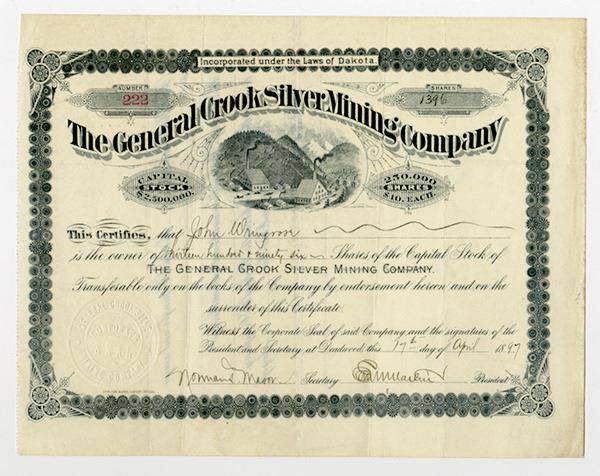 Incorporated under the Laws of Dakota.
NUMBER
222
SHARES
1396
The General Crook Silver Mining Company
CAPITAL
STOCK
$2,500,000.
250,000
SHARES
$10. EACH.
This Certifies, that John Wringrose
is the owner of thirteen hundred & ninety six Shares of the Capital Stock of
THE GENERAL CROOK SILVER MINING COMPANY.
Transferable only on the books of the Company by endorsement hereon and on the
surrender of this Certificate.
Witness the Corporate Seal of said Company and the signatures of the
President and Secretary at Deadwood, this 17th day of April 1897
Norman T. Mason Secretary President